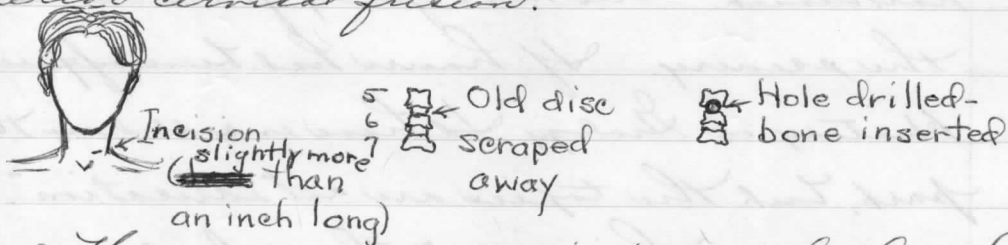 cervical fusion.
Incision
slightly more
( than
an inch long)
5
6
7
Old disc
scraped
away
Hole drilled-
bone inserted